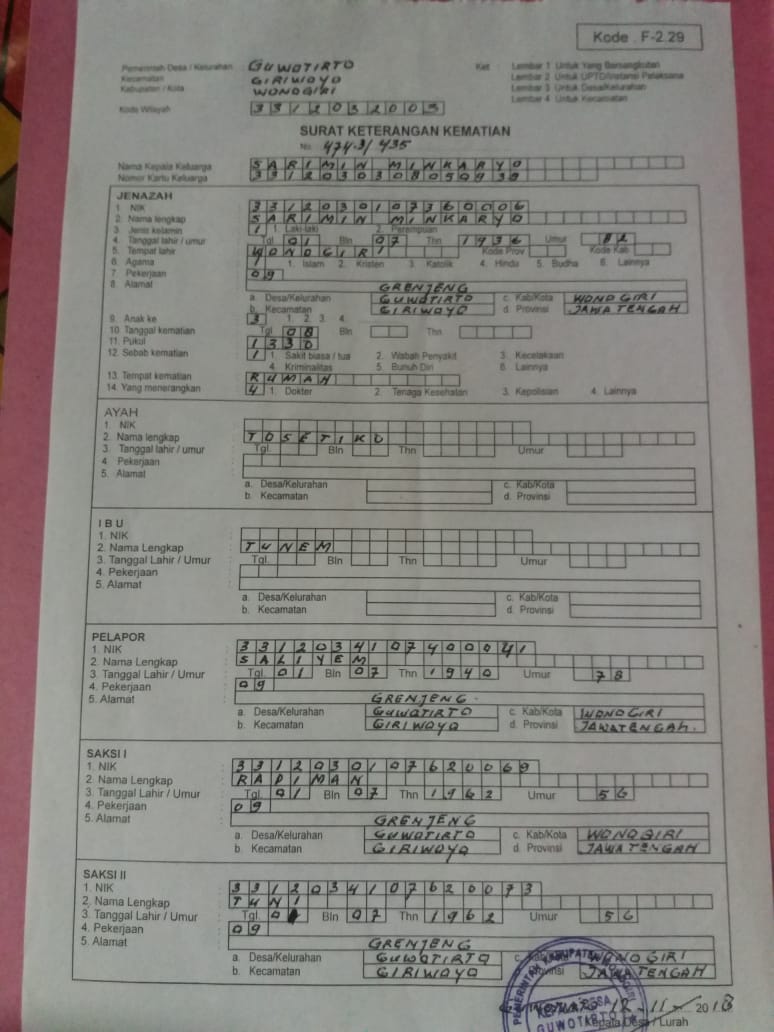 Kode . F-2.29
Pemerintah Desa / Kelurahan : GUWOTIRTO
Kecamatan : GIRIWOYO
Kabupaten / Kota : WONOGIRI
Kode Wilayah 3312032003
Ket : Lembar 1 Untuk Yang Bersangkutan
Lembar 2 Untuk UPTD/Instansi Pelaksana
Lembar 3 Untuk Desa/Kelurahan
Lembar 4 Untuk Kecamatan
SURAT KETERANGAN KEMATIAN
No. 474.3/435
Nama Kepala Keluarga : SARIMIN MINKARYO
Nomor Kartu Keluarga : 3312030308050939
JENAZAH
1. NIK : 3312030107360006
2. Nama lengkap : SARIMIN MINKARYO
3. Jenis kelamin : 1 1. Laki-laki 2. Perempuan
4. Tanggal lahir / umur : Tgl 01 Bln 07 Thn 1936 Umur 82
5. Tempat lahir : WONOGIRI Kode Prov Kode Kab
6. Agama : 1 1. Islam 2. Kristen 3. Katolik 4. Hindu 5. Budha 6. Lainnya
7. Pekerjaan : 09
8. Alamat : GRENJENG
a. Desa/Kelurahan GUWOTIRTO c. Kab/Kota WONOGIRI
b. Kecamatan GIRIWOYO d. Provinsi JAWA TENGAH
9. Anak ke : 3 1. 2. 3. 4.
10. Tanggal kematian : Tgl 08 Bln Thn
11. Pukul : 1330
12. Sebab kematian : 1 1. Sakit biasa / tua 2. Wabah Penyakit 3. Kecelakaan
4. Kriminalitas 5. Bunuh Diri 6. Lainnya
13. Tempat kematian : RUMAH
14. Yang menerangkan : 4 1. Dokter 2. Tenaga Kesehatan 3. Kepolisian 4. Lainnya
AYAH
1. NIK :
2. Nama lengkap : TOSETIKO
3. Tanggal lahir / umur : Tgl. Bln Thn Umur
4. Pekerjaan :
5. Alamat :
a. Desa/Kelurahan c. Kab/Kota
b. Kecamatan d. Provinsi
I B U
1. NIK :
2. Nama Lengkap : TUNEM
3. Tanggal Lahir / Umur : Tgl. Bln Thn Umur
4. Pekerjaan :
5. Alamat :
a. Desa/Kelurahan c. Kab/Kota
b. Kecamatan d. Provinsi
PELAPOR
1. NIK : 3312034107400041
2. Nama Lengkap : SALIYEM
3. Tanggal Lahir / Umur : Tgl 01 Bln 07 Thn 1940 Umur 78
4. Pekerjaan : 09
5. Alamat : GRENJENG
a. Desa/Kelurahan GUWOTIRTO c. Kab/Kota WONOGIRI
b. Kecamatan GIRIWOYO d. Provinsi JAWATENGAH.
SAKSI I
1. NIK : 3312030107620069
2. Nama Lengkap : RADIMAN
3. Tanggal Lahir / Umur : Tgl 01 Bln 07 Thn 1962 Umur 56
4. Pekerjaan : 09
5. Alamat : GRENJENG
a. Desa/Kelurahan GUWOTIRTO c. Kab/Kota WONOGIRI
b. Kecamatan GIRIWOYO d. Provinsi JAWA TENGAH
SAKSI II
1. NIK : 3312034107620073
2. Nama Lengkap : TUNI
3. Tanggal Lahir / Umur : Tgl. 0 Bln 07 Thn 1962 Umur 56
4. Pekerjaan : 09
5. Alamat : GRENJENG
a. Desa/Kelurahan GUWOTIRTO c. Kab/Kota WONOGIRI
b. Kecamatan GIRIWOYO d. Provinsi JAWA TENGAH
PEMERINTAH KABUPATEN
12-11- 2018
Kepala Desa / Lurah
KEPALA DESA
GUWOTIRTO